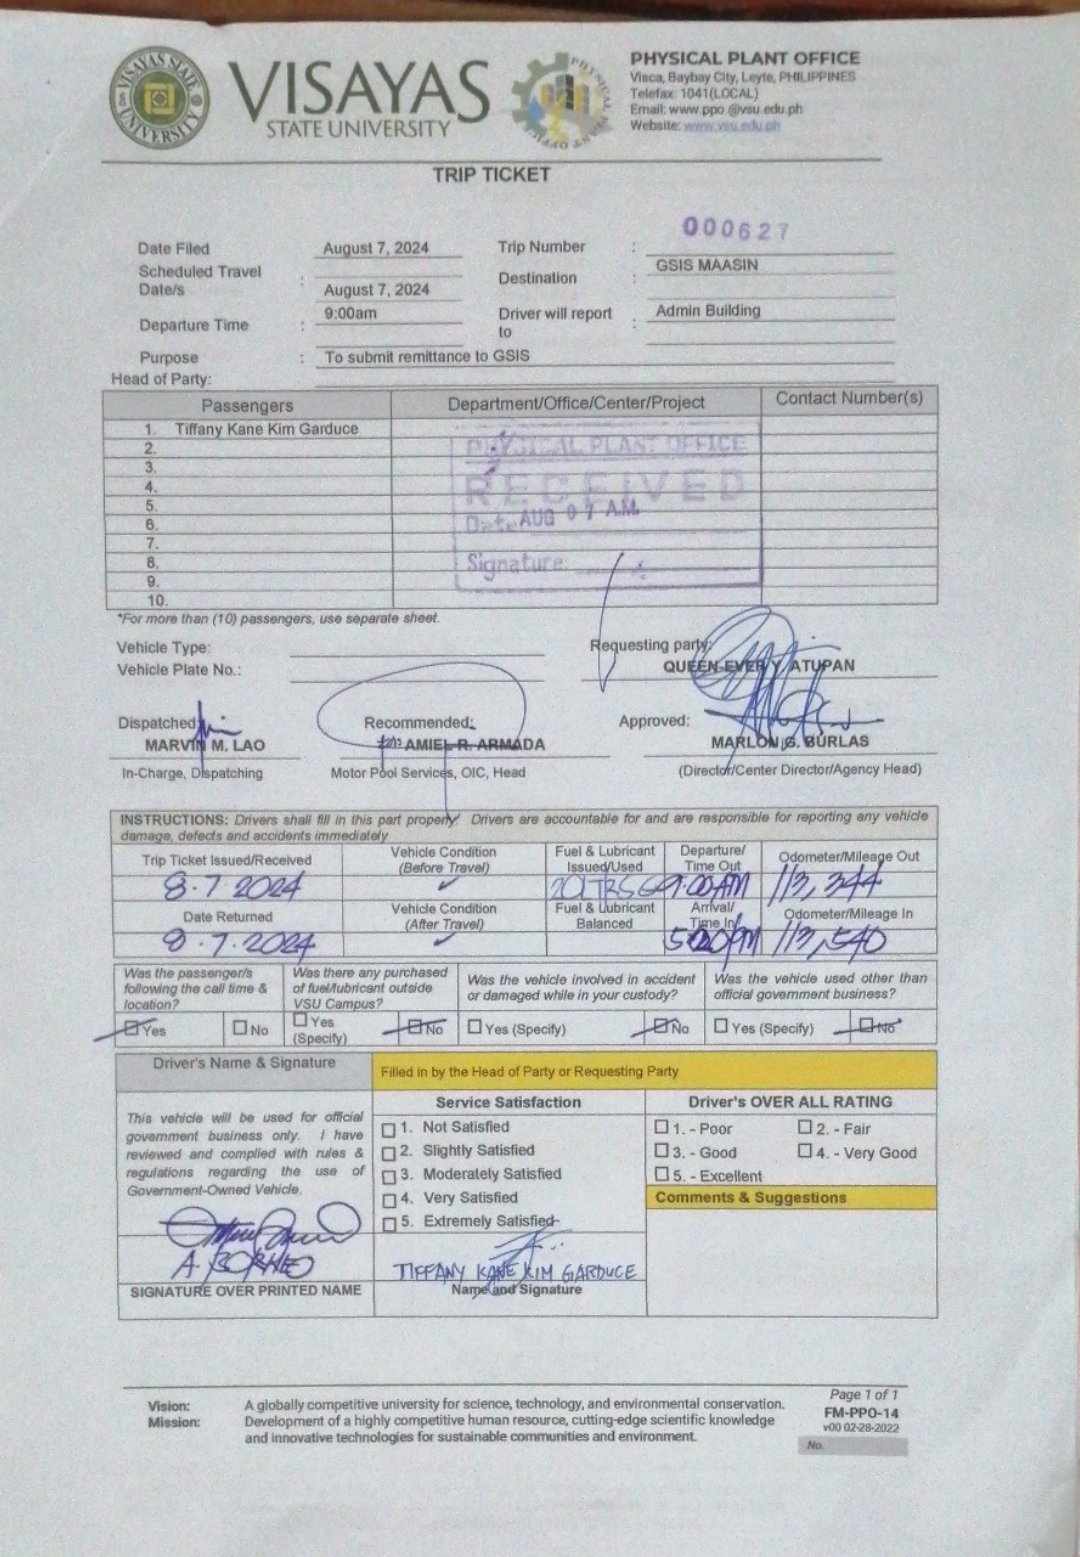 VISAYAS STATE UNIVERSITY
VISAYAS
STATE UNIVERSITY
PHYSICAL PLANT OFFICE
Visca, Baybay City, Leyte, PHILIPPINES
Telefax: 1041(LOCAL)
Email: www.ppo @vsu.edu.ph
Website: www.vsu.edu.ph
TRIP TICKET
000627
Date Filed August 7, 2024 Trip Number :
Scheduled Travel Date/s : August 7, 2024 Destination : GSIS MAASIN
Departure Time : 9:00am Driver will report to : Admin Building
Purpose : To submit remittance to GSIS
Head of Party:
Passengers Department/Office/Center/Project Contact Number(s)
1. Tiffany Kane Kim Garduce
2.
3.
4.
5.
6.
7.
8.
9.
10.
PHYSICAL PLANT OFFICE
RECEIVED
Date AUG 07 A.M.
Signature:
*For more than (10) passengers, use separate sheet.
Vehicle Type: Requesting party:
Vehicle Plate No.: QUEEN-EVER Y. ATUPAN
Dispatched Recommended: Approved:
MARVIN M. LAO AMIEL R. ARMADA MARLON G. BURLAS
In-Charge, Dispatching Motor Pool Services, OIC, Head (Director/Center Director/Agency Head)
INSTRUCTIONS: Drivers shall fill in this part properly. Drivers are accountable for and are responsible for reporting any vehicle
damage, defects and accidents immediately
Trip Ticket Issued/Received Vehicle Condition (Before Travel) Fuel & Lubricant Issued/Used Departure/ Time Out Odometer/Mileage Out
8.7.2024 ✓ 20LTRS 9:00AM 113,344
Date Returned Vehicle Condition (After Travel) Fuel & Lubricant Balanced Arrival/ Time In Odometer/Mileage In
8.7.2024 ✓ 113,540
Was the passenger/s following the call time & location? Was there any purchased of fuel/lubricant outside VSU Campus? Was the vehicle involved in accident or damaged while in your custody? Was the vehicle used other than official government business?
☐ Yes ☐ No ☐ Yes (Specify) ☐ No ☐ Yes (Specify) ☐ No ☐ Yes (Specify) ☐ No
Driver's Name & Signature Filled in by the Head of Party or Requesting Party
Service Satisfaction Driver's OVER ALL RATING
This vehicle will be used for official
government business only. I have
reviewed and complied with rules &
regulations regarding the use of
Government-Owned Vehicle.
☐ 1. Not Satisfied
☐ 2. Slightly Satisfied
☐ 3. Moderately Satisfied
☐ 4. Very Satisfied
☐ 5. Extremely Satisfied
☐ 1. - Poor ☐ 2. - Fair
☐ 3. - Good ☐ 4. - Very Good
☐ 5. - Excellent
Comments & Suggestions
A. BORNEO
TIFFANY KANE KIM GARDUCE
SIGNATURE OVER PRINTED NAME Name and Signature
Vision: A globally competitive university for science, technology, and environmental conservation.
Mission: Development of a highly competitive human resource, cutting-edge scientific knowledge
and innovative technologies for sustainable communities and environment.
Page 1 of 1
FM-PPO-14
v00 02-28-2022
No.